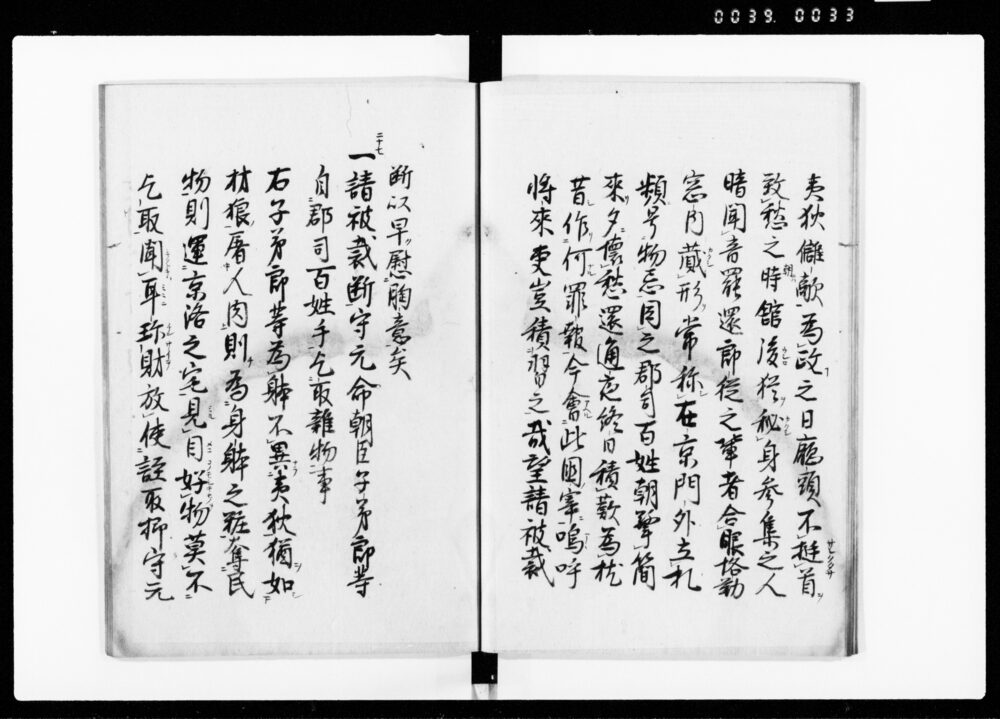 0039. 0033
夷狄讎敵為政之日廳頭不挺首
致愁之時館後猶秘身参集之人
暗聞音罷還郎従之輩者合眼恪勤
窓内蔵形常称在京門外立札
頻号物忌因之郡司百姓朝捧簡
来夕懐愁還通夜終日積歎為枕
昔作何罪報今會此國宰嗚呼
将来更豈積習之哉望請被裁
断以早慰胸意矣
二十七
一請被裁断守元命朝臣子弟郎等
自郡司百姓手乞取雑物事
右子弟郎等為躰不異夷狄猶如
豺狼屠人肉則為身躰之粧奪民
物則運京洛之宅見目好物莫不
乞取聞耳珎財放使誣取抑守元